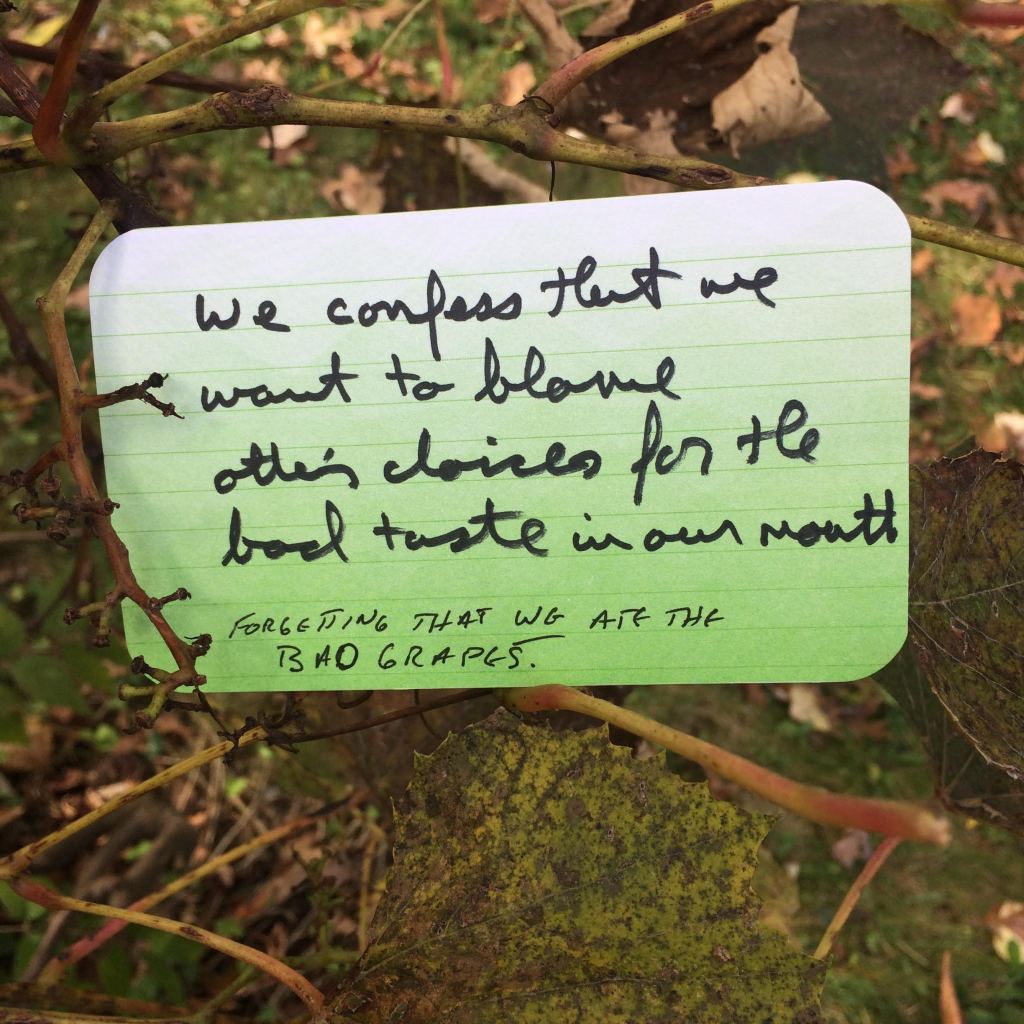 We confess that we
want to blame
other's choices for the
bad taste in our mouth
FORGETTING THAT WE ATE THE
BAD GRAPES.